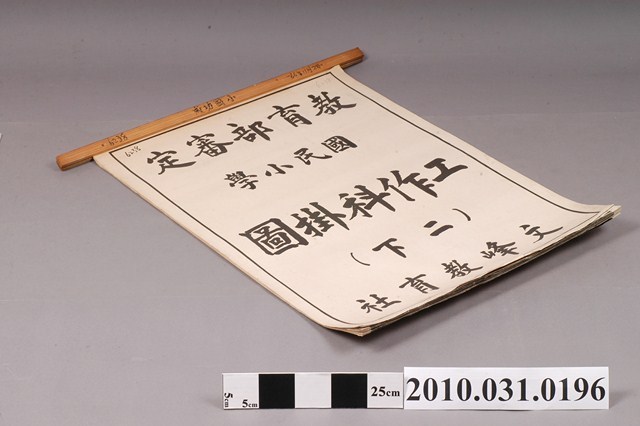 成功國小
教育部審定
國民小學
工作科掛圖
(二下)
文峰教育社
5cm
5cm
25cm
2010.031.0196